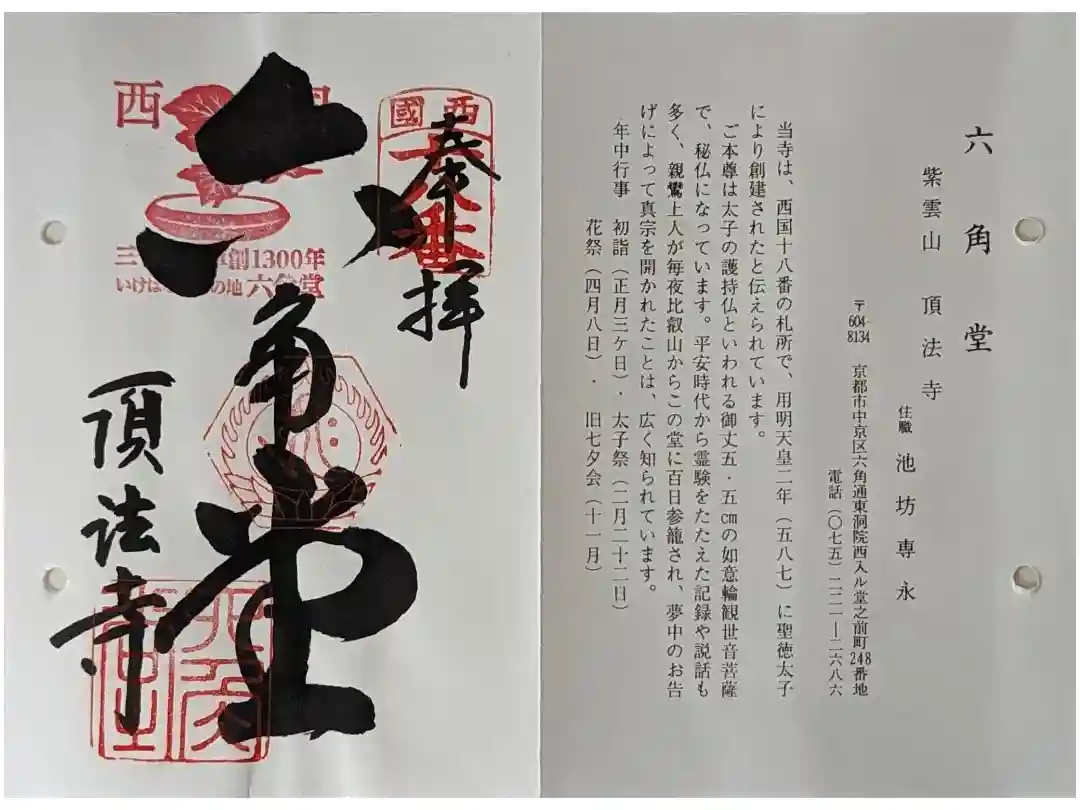 六角堂
紫雲山 頂法寺
住職 池坊専永
〒604-8134 京都市中京区六角通東洞院西入ル堂之前町248番地
電話(〇七五)二二一―二六八六
当寺は、西国十八番の札所で、用明天皇二年(五八七)に聖徳太子
により創建されたと伝えられています。
ご本尊は太子の護持仏といわれる御丈五・五㎝の如意輪観世音菩薩
で、秘仏になっています。平安時代から霊験をたたえた記録や説話も
多く、親鸞上人が毎夜比叡山からこの堂に百日参籠され、夢中のお告
げによって真宗を開かれたことは、広く知られています。
年中行事 初詣(正月三ケ日)・太子祭(二月二十二日)
花祭(四月八日)・ 旧七夕会(十一月)
西國
奉拝
六角堂
頂法寺
西
創1300年
の地 六角堂